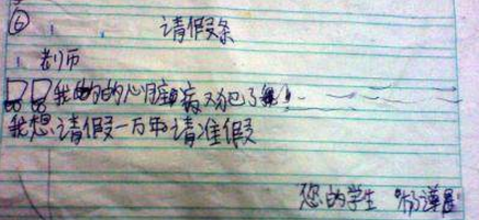 ⑥ 请假条
老师
我的的心脏病又犯了
我想请假一万年请准假
您的学生 杨